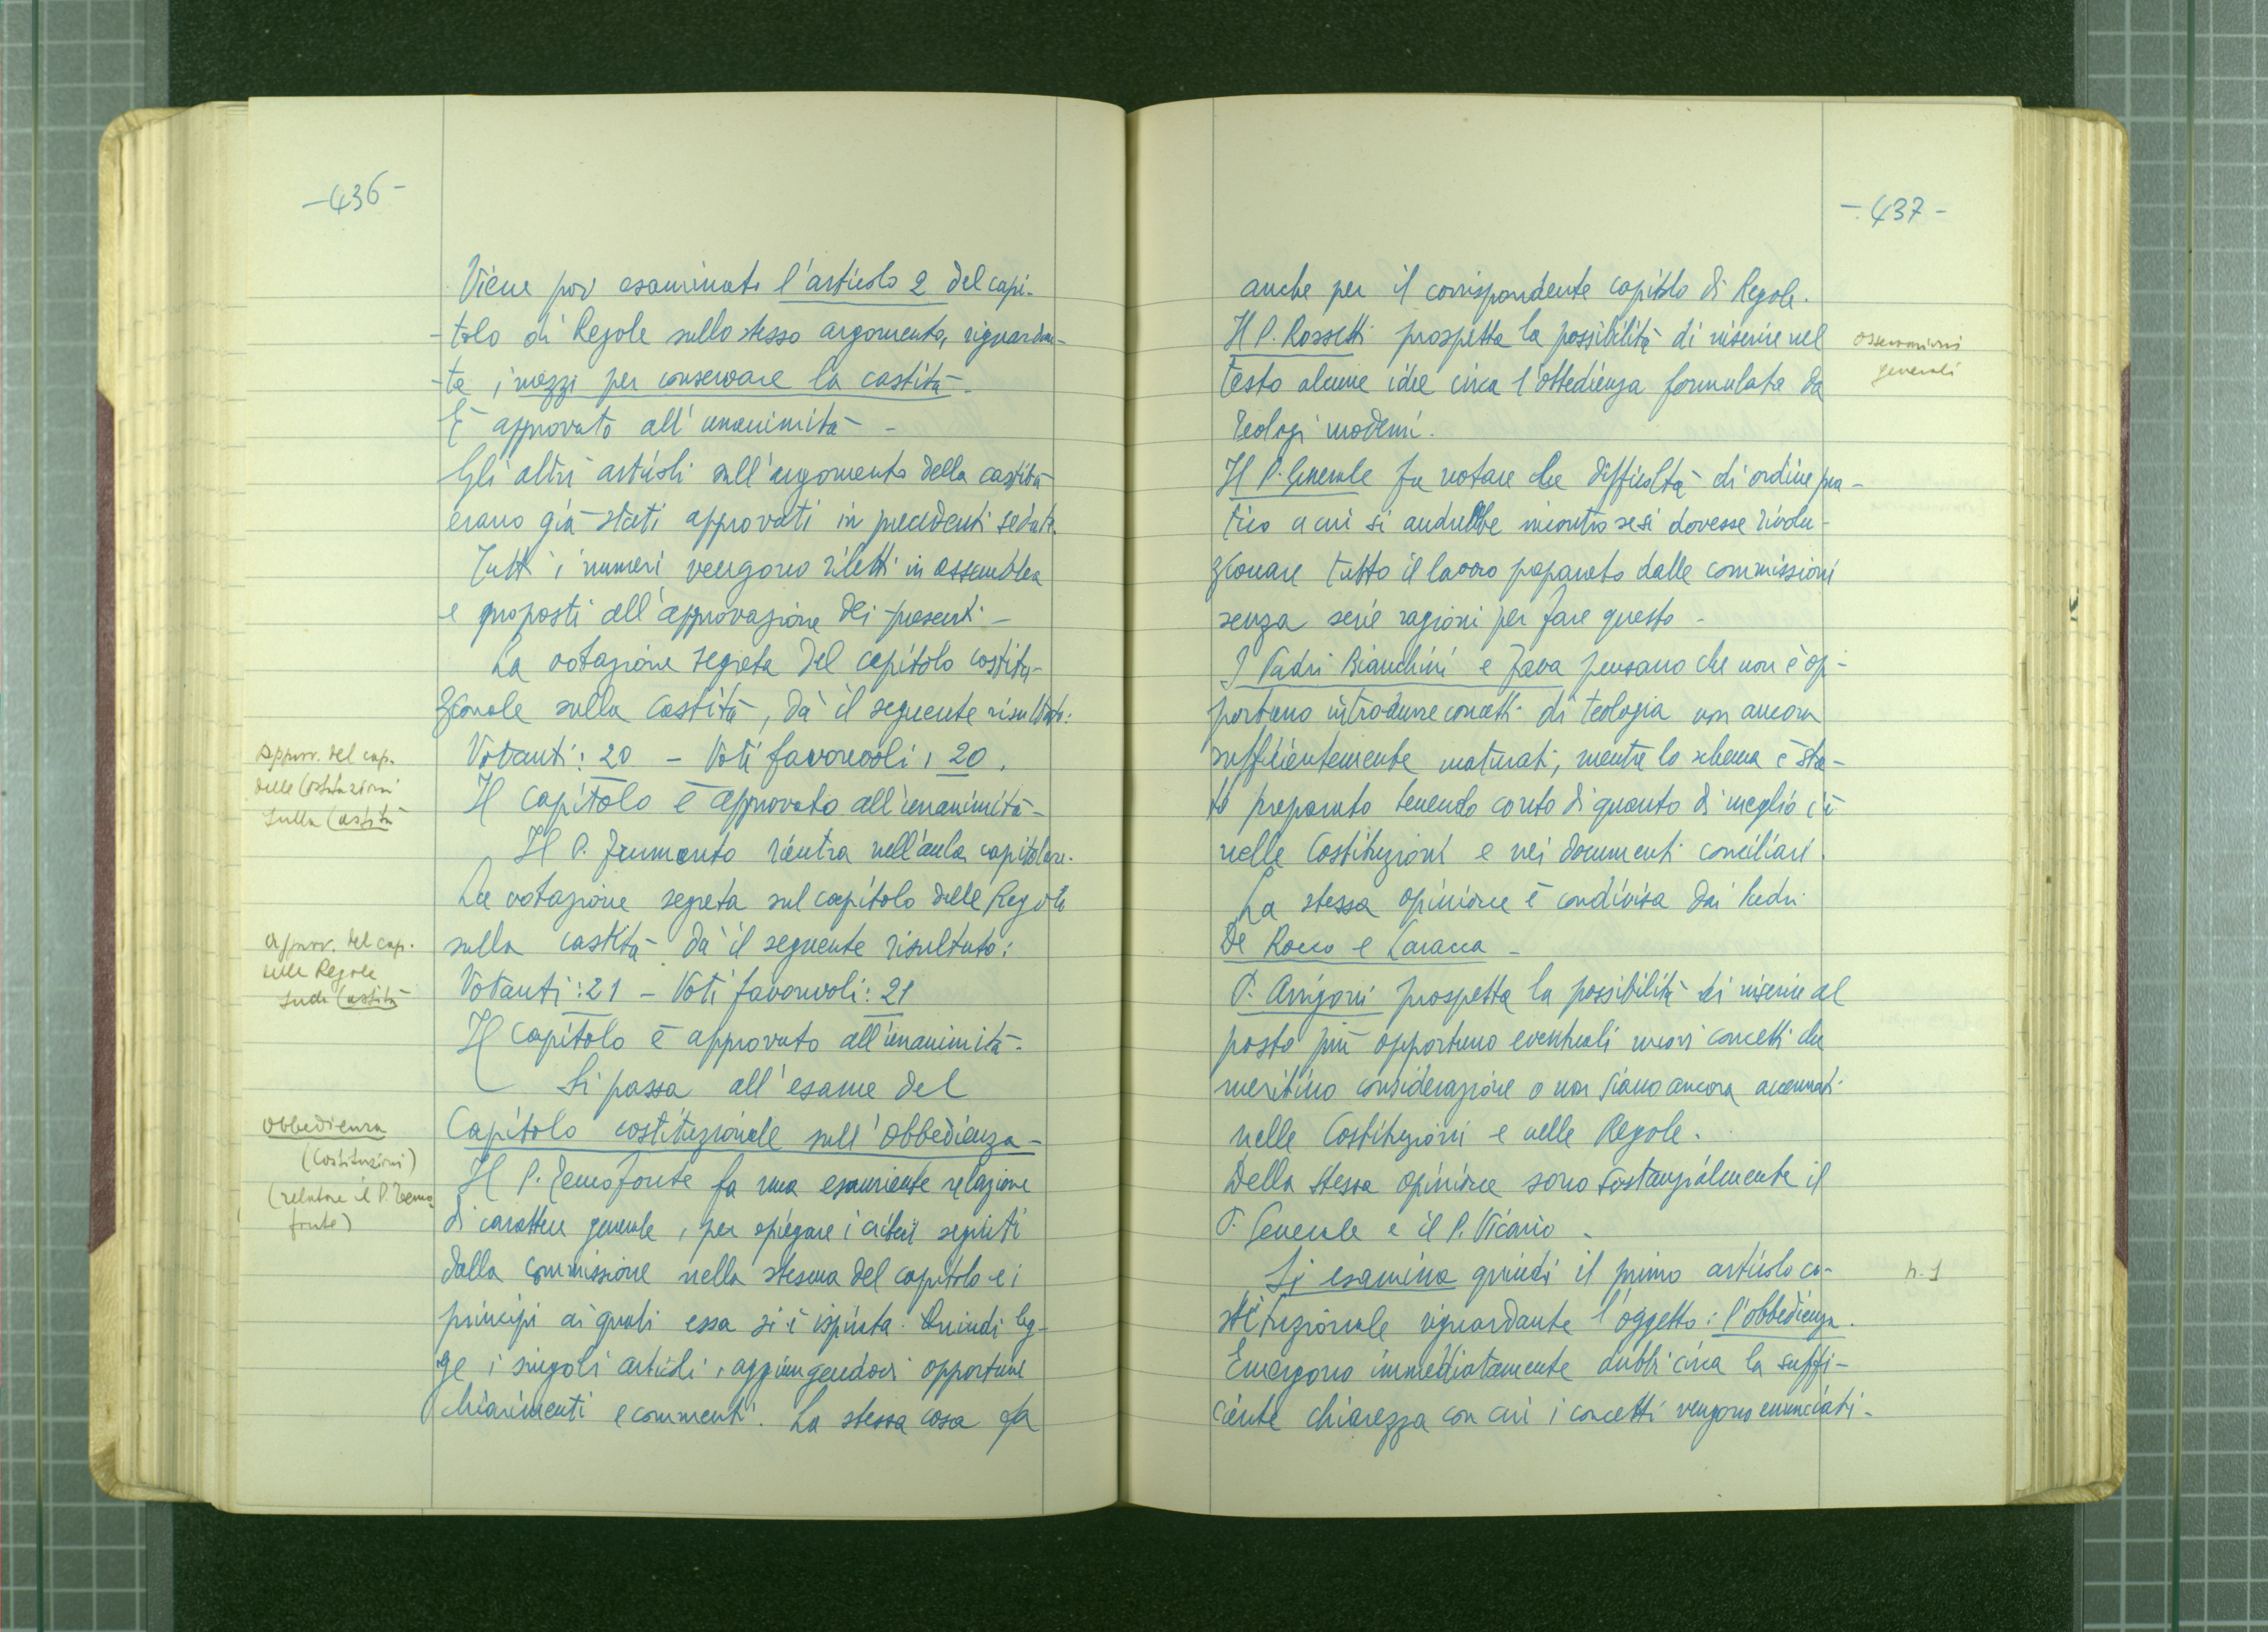 -436-
Viene poi esaminato l'articolo 2 del capi-
-tolo di Regole sullo stesso argomento, riguardan-
-te i mezzi per conservare la castità.
È approvato all'unanimità -
Gli altri articoli sull'argomento della castità
erano già stati approvati in precedenti sedute.
Tutti i numeri vengono riletti in assemblea
e proposti all'approvazione dei presenti -
La votazione segreta del capitolo costitu-
zionale sulla castità, dà il seguente risultato:
Approv. del cap.
delle Costituzioni
sulla Castità
Votanti: 20 - Voti favorevoli: 20.
Il capitolo è approvato all'unanimità -
Il P. Frumento rientra nell'aula capitolare.
La votazione segreta sul capitolo delle Regole
approv. del cap.
delle Regole
sulla Castità
sulla castità dà il seguente risultato:
Votanti: 21 - Voti favorevoli: 21
Il capitolo è approvato all'unanimità.
Si passa all'esame del
Obbedienza
(Costituzioni)
(relatore il P. Temo
fonte)
Capitolo costituzionale sull'obbedienza -
Il P. Temofonte fa una esauriente relazione
di carattere generale, per spiegare i criteri seguiti
dalla commissione nella stesura del capitolo e i
principi ai quali essa si è ispirata. Quindi leg-
ge i singoli articoli, aggiungendovi opportuni
chiarimenti e commenti. La stessa cosa fa
-437-
anche per il corrispondente capitolo di Regole.
Il P. Rossetti prospetta la possibilità di inserire nel
osservazioni
generali
testo alcune idee circa l'obbedienza formulata da
teologi moderni.
Il P. Generale fa notare le difficoltà di ordine pra-
tico a cui si andrebbe incontro se si dovesse rivolu-
zionare tutto il lavoro preparato dalle commissioni
senza serie ragioni per fare questo -
I Padri Bianchini e Fava pensano che non è op-
portuno introdurre concetti di teologia non ancora
sufficientemente maturati, mentre lo schema è sta-
to preparato tenendo conto di quanto di meglio c'è
nelle Costituzioni e nei documenti conciliari.
La stessa opinione è condivisa dai Padri
De Rocco e Caracca -
P. Arrigoni prospetta la possibilità di inserire al
posto più opportuno eventuali nuovi concetti che
meritino considerazione o non siano ancora accennati
nelle Costituzioni e nelle Regole.
Della stessa opinione sono sostanzialmente il
P. Generale e il P. Vicario.
Si esamina quindi il primo articolo co-
n. 1
stituzionale riguardante l'oggetto: l'obbedienza.
Emergono immediatamente dubbi circa la suffi-
ciente chiarezza con cui i concetti vengono enunciati -